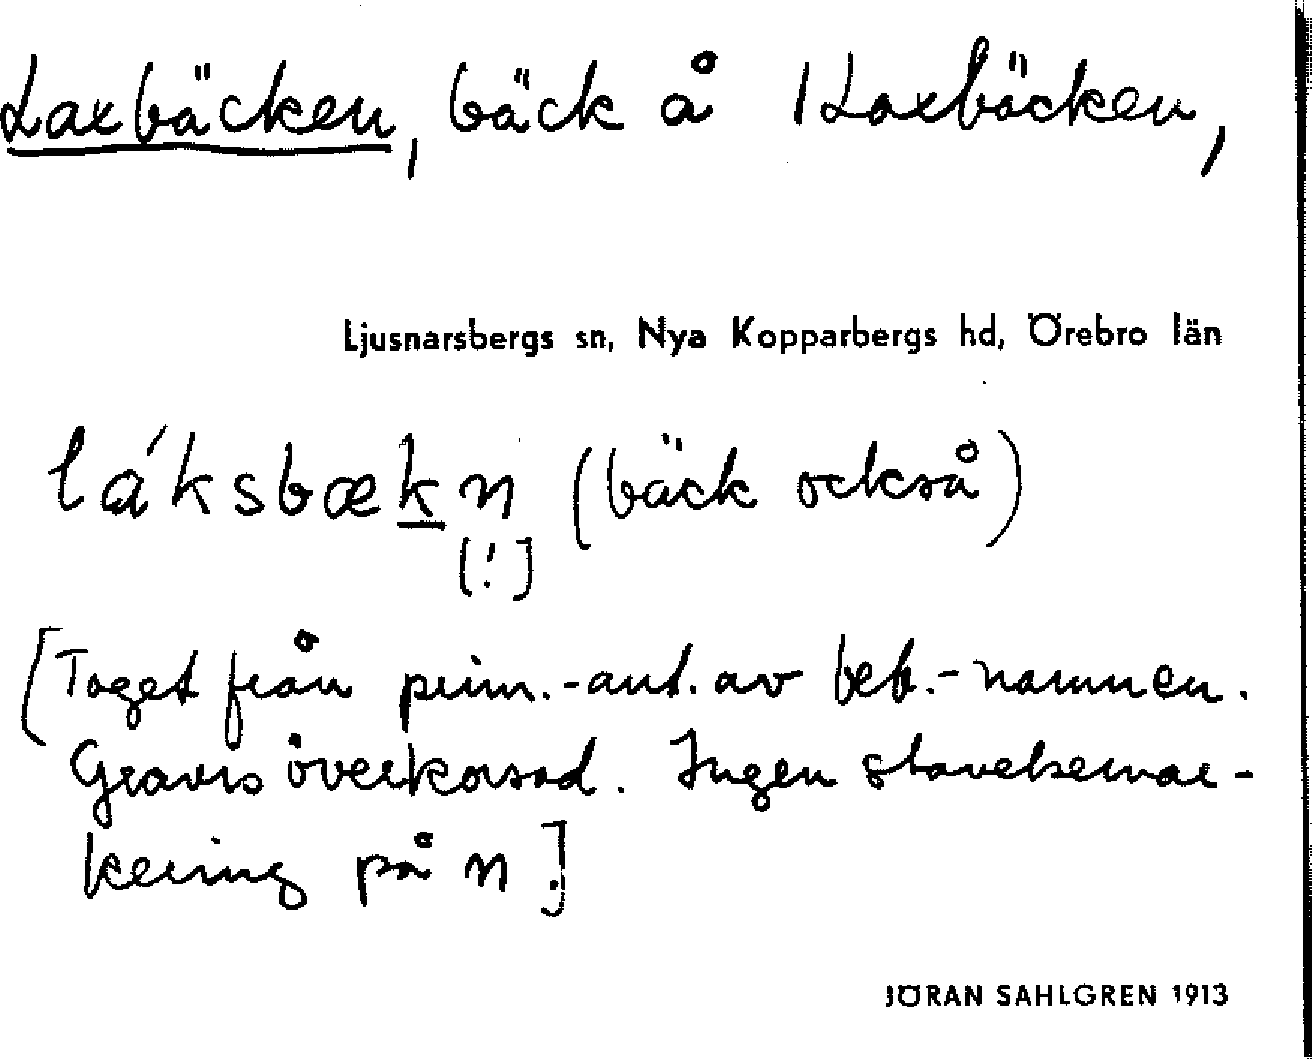 Laxbäcken, bäck å 1 Laxbäcken,
Ljusnarsbergs sn, Nya Kopparbergs hd, Örebro län
láksbækn (bäck också)
[!]
[Taget från prim.-ant. av beb.-namnen.
Gravis överkorsad. Ingen stavelsemar-
kering på n.]
JÖRAN SAHLGREN 1913